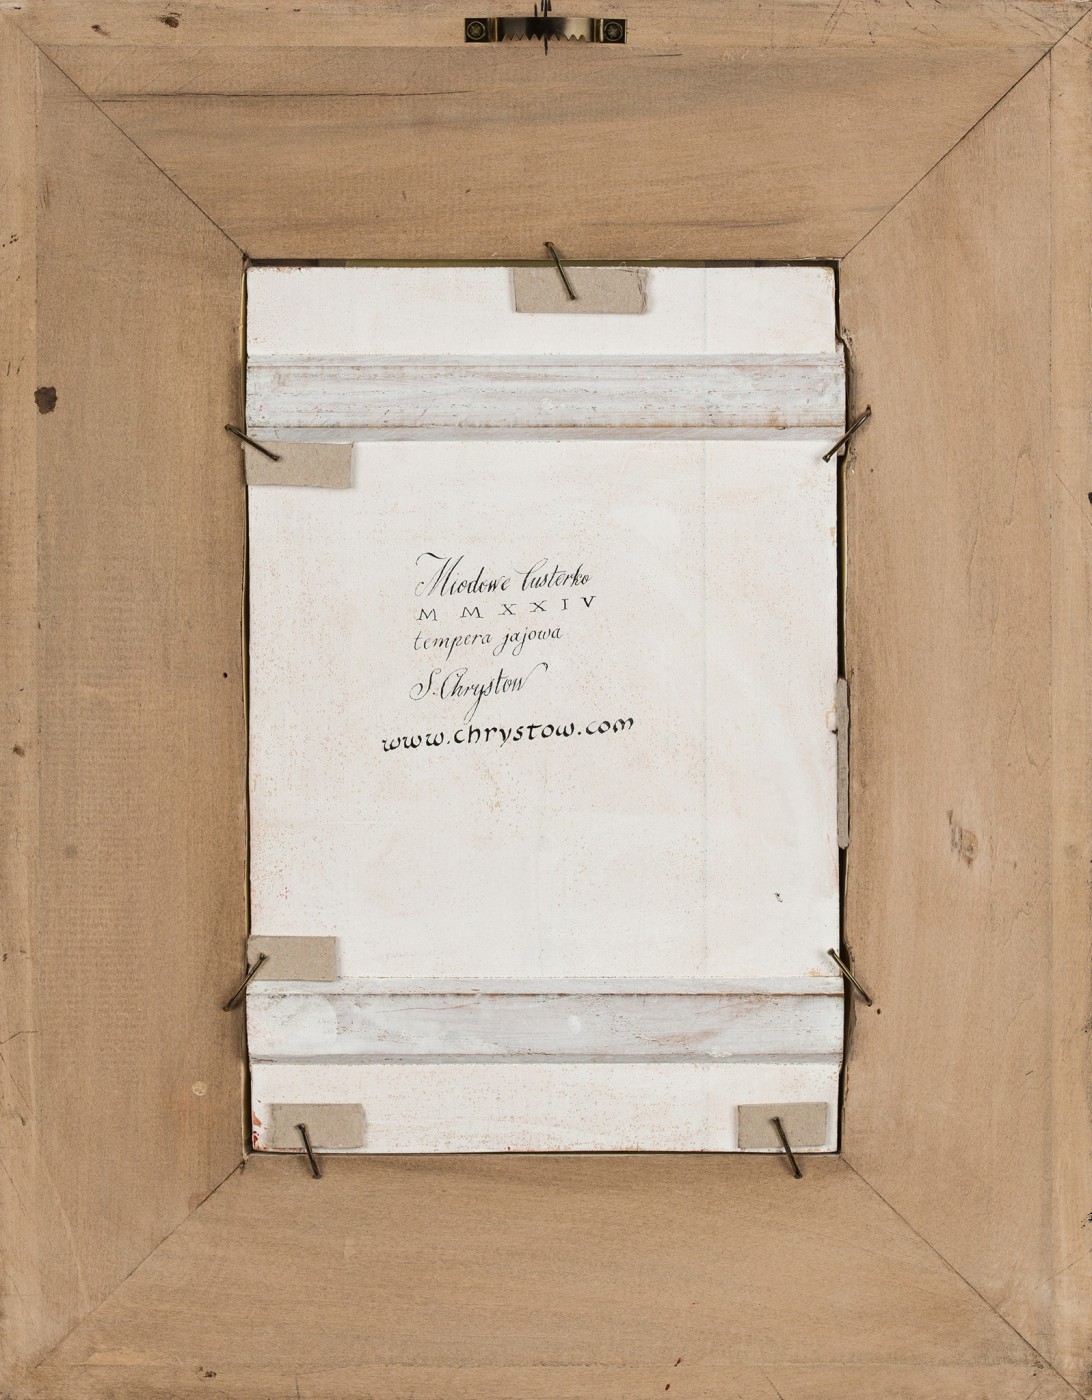 Miodowe lusterko
M M X X I V
tempera jajowa
S. Chrystow
www.chrystow.com